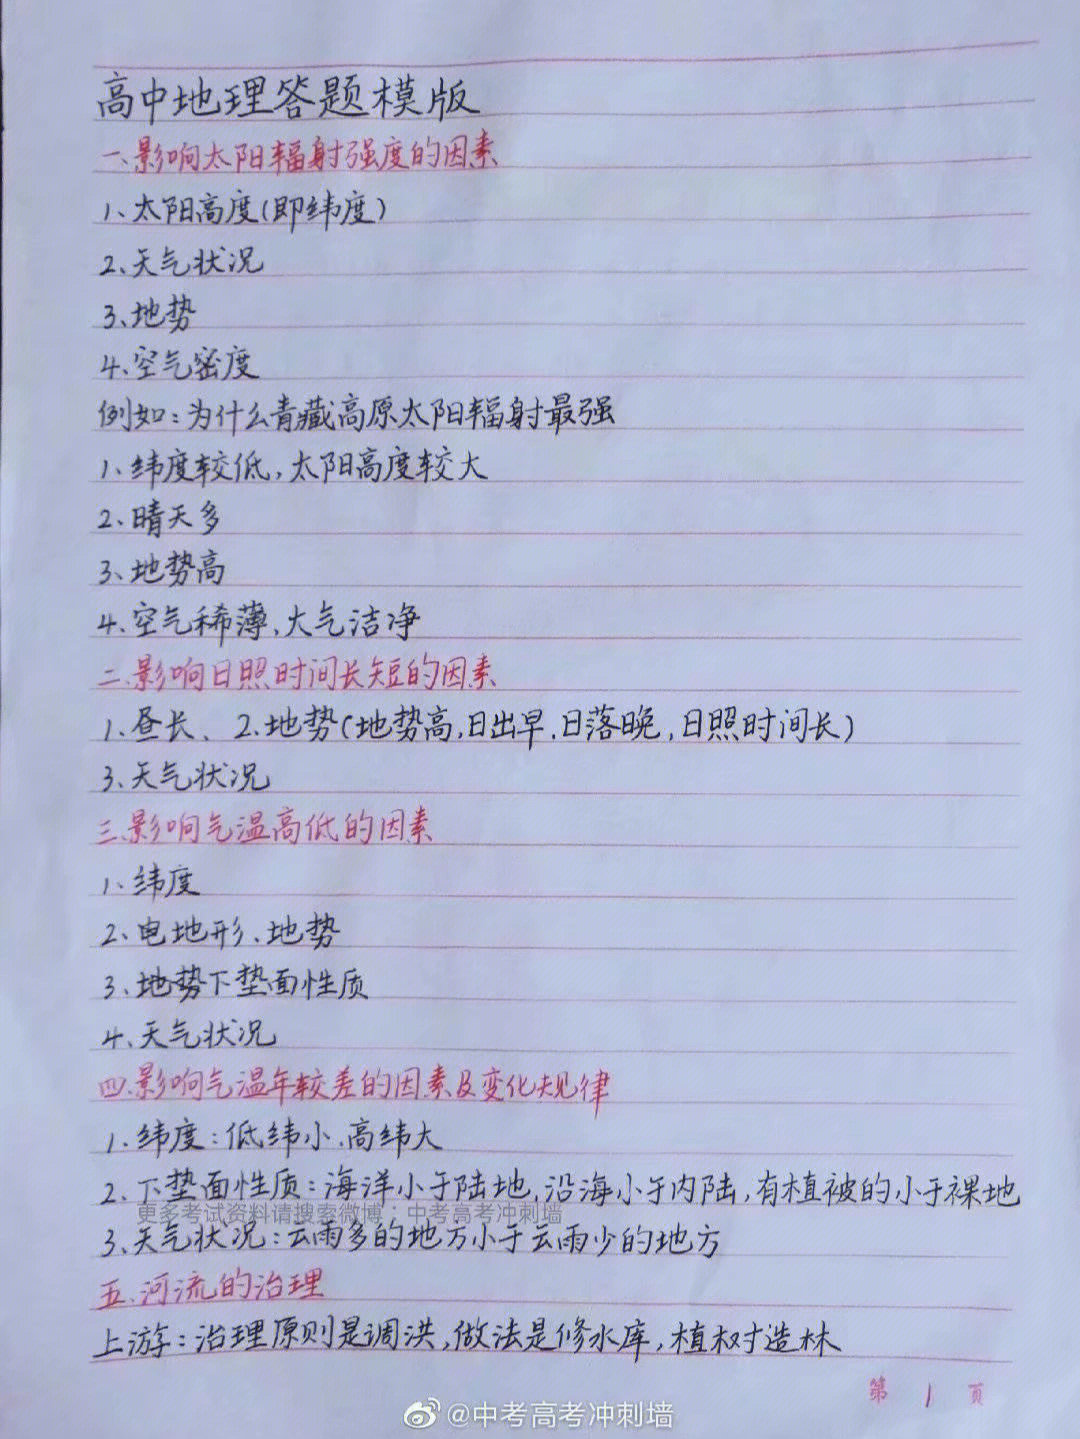 高中地理答题模版
一.影响太阳辐射强度的因素
1、太阳高度(即纬度)
2、天气状况
3、地势
4、空气密度
例如:为什么青藏高原太阳辐射最强
1、纬度较低,太阳高度较大
2、晴天多
3、地势高
4、空气稀薄、大气洁净
二.影响日照时间长短的因素
1.昼长、2.地势(地势高,日出早,日落晚,日照时间长)
3、天气状况
三.影响气温高低的因素
1、纬度
2、电地形、地势
3、地势下垫面性质
4、天气状况
四.影响气温年较差的因素及变化规律
1.纬度:低纬小、高纬大
2、下垫面性质:海洋小于陆地,沿海小于内陆,有植被的小于裸地
更多考试资料请搜索微博:中考高考冲刺墙
3、天气状况:云雨多的地方小于云雨少的地方
五.河流的治理
上游:治理原则是调洪,做法是修水库,植树造林
第 1 页
@中考高考冲刺墙